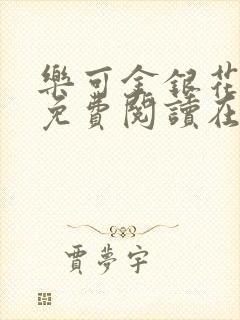 樂可金銀花
免費閱讀在
賈夢宇